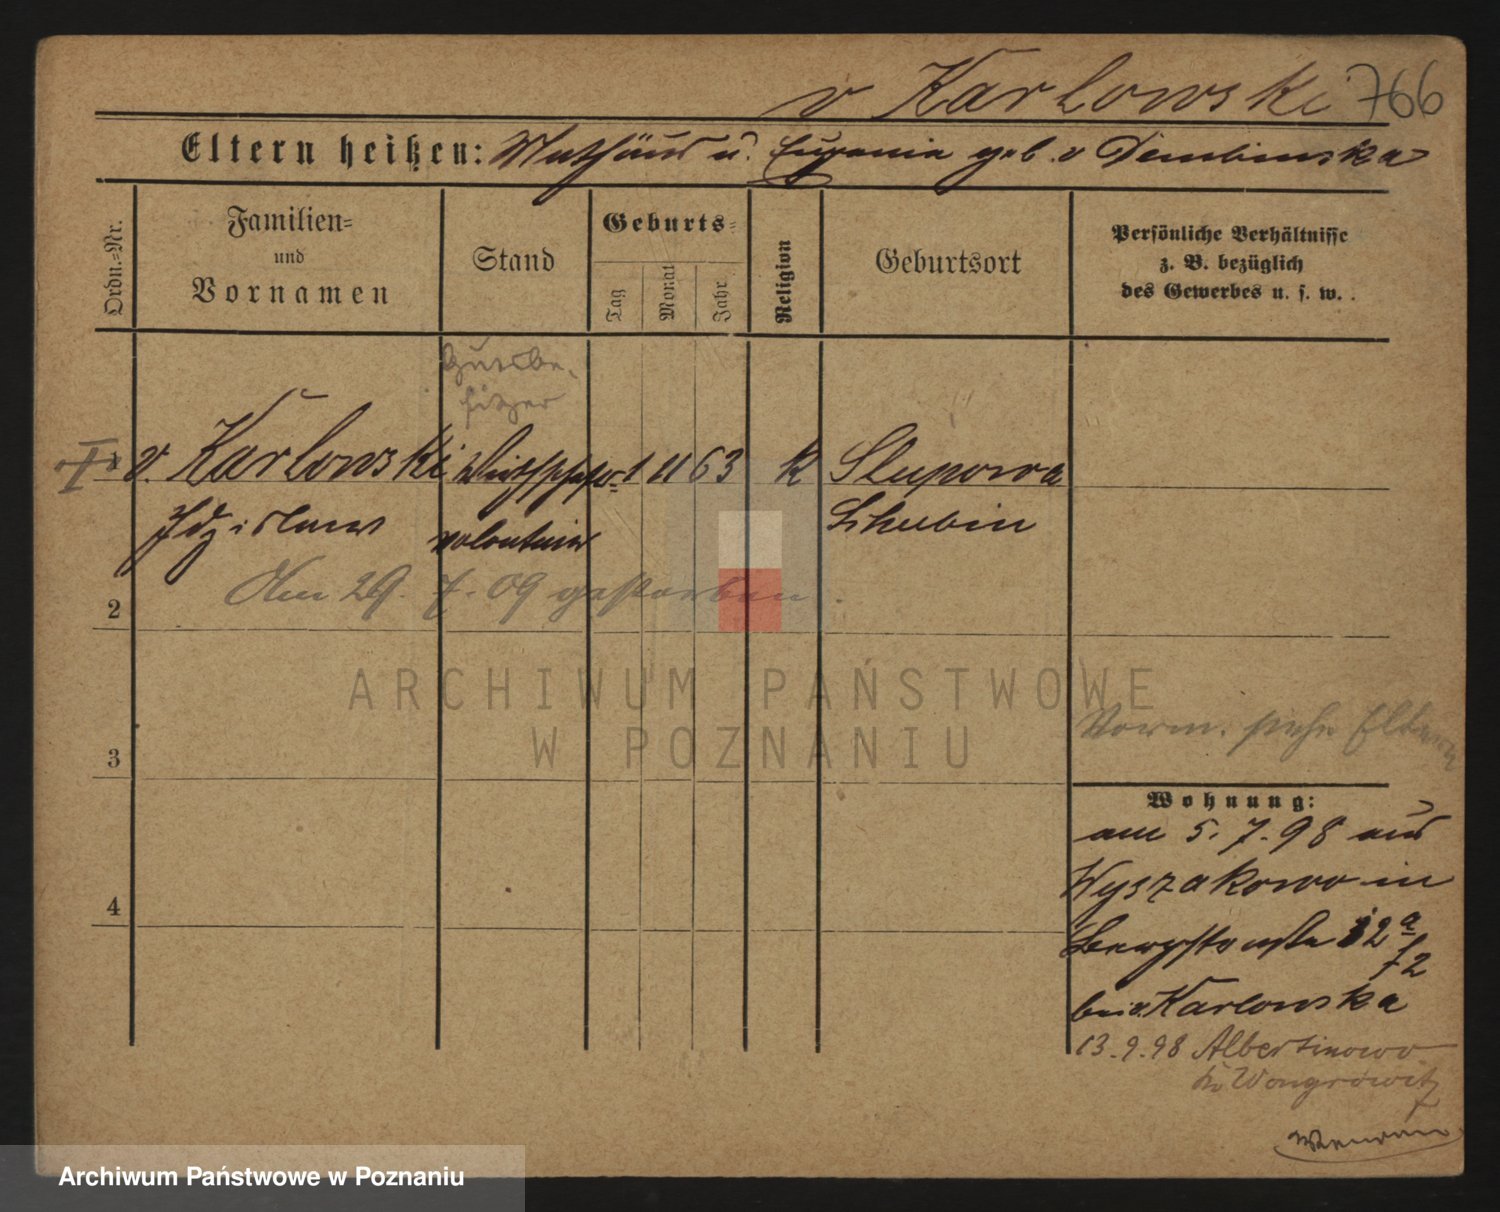 v Karlowski 766
Eltern heißen: Mathäus u. Eugenia geb. v Dembinska
Ordn.-Nr.
Familien-
und
Vornamen
Stand
Geburts-
Tag
Monat
Jahr
Religion
Geburtsort
Persönliche Verhältnisse
z. B. bezüglich
des Gewerbes u. s. w.
Gutsbe-
sitzer
1 v. Karlowski Wirthschafts- 1 11 63 k Slupowa
Zdzislaw volontair Schubin
Am 29. 7. 09 gestorben.
2
3
4
Vorm. siehe Eltern
Wohnung:
am 5. 7. 98 aus
Wyszakowo in
Bergstraße 12 a
bei v. Karlowska
13. 9. 98 Albertinowo
Kr Wongrowitz
ARCHIWUM PAŃSTWOWE
W POZNANIU
Archiwum Państwowe w Poznaniu